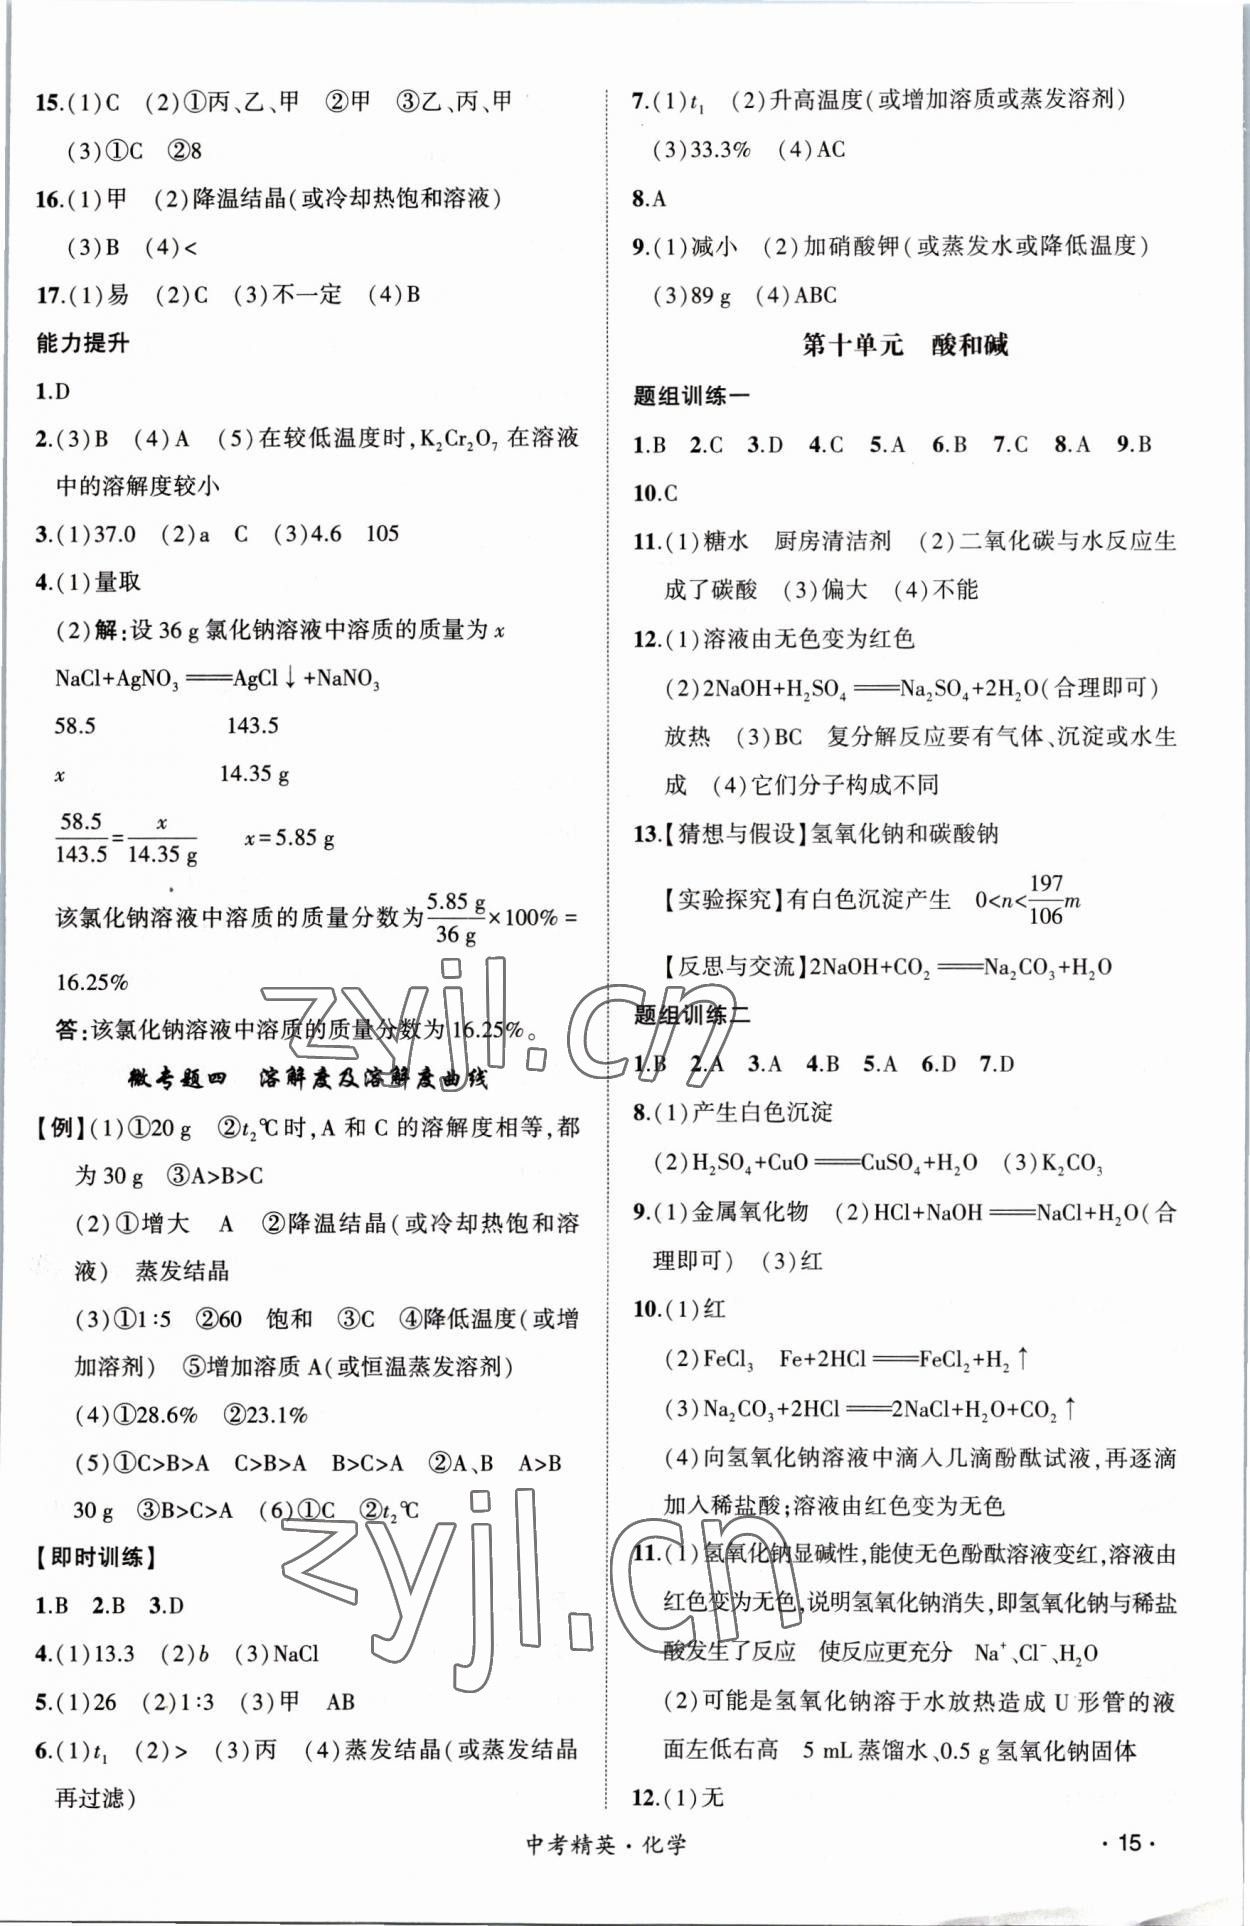 15.(1)C (2)①丙、乙、甲 ②甲 ③乙、丙、甲
(3)①C ②8
16.(1)甲 (2)降温结晶(或冷却热饱和溶液)
(3)B (4)<
17.(1)易 (2)C (3)不一定 (4)B
能力提升
1.D
2.(3)B (4)A (5)在较低温度时,K₂Cr₂O₇在溶液
中的溶解度较小
3.(1)37.0 (2)a C (3)4.6 105
4.(1)量取
(2)解:设36 g氯化钠溶液中溶质的质量为x
NaCl+AgNO₃══AgCl↓+NaNO₃
58.5 143.5
x 14.35 g
58.5/143.5=x/14.35 g x=5.85 g
该氯化钠溶液中溶质的质量分数为5.85 g/36 g×100%=
16.25%
答:该氯化钠溶液中溶质的质量分数为16.25%。
微专题四 溶解度及溶解度曲线
【例】(1)①20 g ②t₂℃时,A和C的溶解度相等,都
为30 g ③A>B>C
(2)①增大 A ②降温结晶(或冷却热饱和溶
液) 蒸发结晶
(3)①1∶5 ②60 饱和 ③C ④降低温度(或增
加溶剂) ⑤增加溶质A(或恒温蒸发溶剂)
(4)①28.6% ②23.1%
(5)①C>B>A C>B>A B>C>A ②A、B A>B
30 g ③B>C>A (6)①C ②t₂℃
【即时训练】
1.B 2.B 3.D
4.(1)13.3 (2)b (3)NaCl
5.(1)26 (2)1∶3 (3)甲 AB
6.(1)t₁ (2)> (3)丙 (4)蒸发结晶(或蒸发结晶
再过滤)
7.(1)t₁ (2)升高温度(或增加溶质或蒸发溶剂)
(3)33.3% (4)AC
8.A
9.(1)减小 (2)加硝酸钾(或蒸发水或降低温度)
(3)89 g (4)ABC
第十单元 酸和碱
题组训练一
1.B 2.C 3.D 4.C 5.A 6.B 7.C 8.A 9.B
10.C
11.(1)糖水 厨房清洁剂 (2)二氧化碳与水反应生
成了碳酸 (3)偏大 (4)不能
12.(1)溶液由无色变为红色
(2)2NaOH+H₂SO₄══Na₂SO₄+2H₂O(合理即可)
放热 (3)BC 复分解反应要有气体、沉淀或水生
成 (4)它们分子构成不同
13.【猜想与假设】氢氧化钠和碳酸钠
【实验探究】有白色沉淀产生 0<n<197/106m
【反思与交流】2NaOH+CO₂══Na₂CO₃+H₂O
题组训练二
1.B 2.A 3.A 4.B 5.A 6.D 7.D
8.(1)产生白色沉淀
(2)H₂SO₄+CuO══CuSO₄+H₂O (3)K₂CO₃
9.(1)金属氧化物 (2)HCl+NaOH══NaCl+H₂O(合
理即可) (3)红
10.(1)红
(2)FeCl₃ Fe+2HCl══FeCl₂+H₂↑
(3)Na₂CO₃+2HCl══2NaCl+H₂O+CO₂↑
(4)向氢氧化钠溶液中滴入几滴酚酞试液,再逐滴
加入稀盐酸;溶液由红色变为无色
11.(1)氢氧化钠显碱性,能使无色酚酞溶液变红,溶液由
红色变为无色,说明氢氧化钠消失,即氢氧化钠与稀盐
酸发生了反应 使反应更充分 Na⁺、Cl⁻、H₂O
(2)可能是氢氧化钠溶于水放热造成U形管的液
面左低右高 5 mL蒸馏水、0.5 g氢氧化钠固体
12.(1)无
zyjl.cn
zyjl.cn
中考精英·化学
·15·